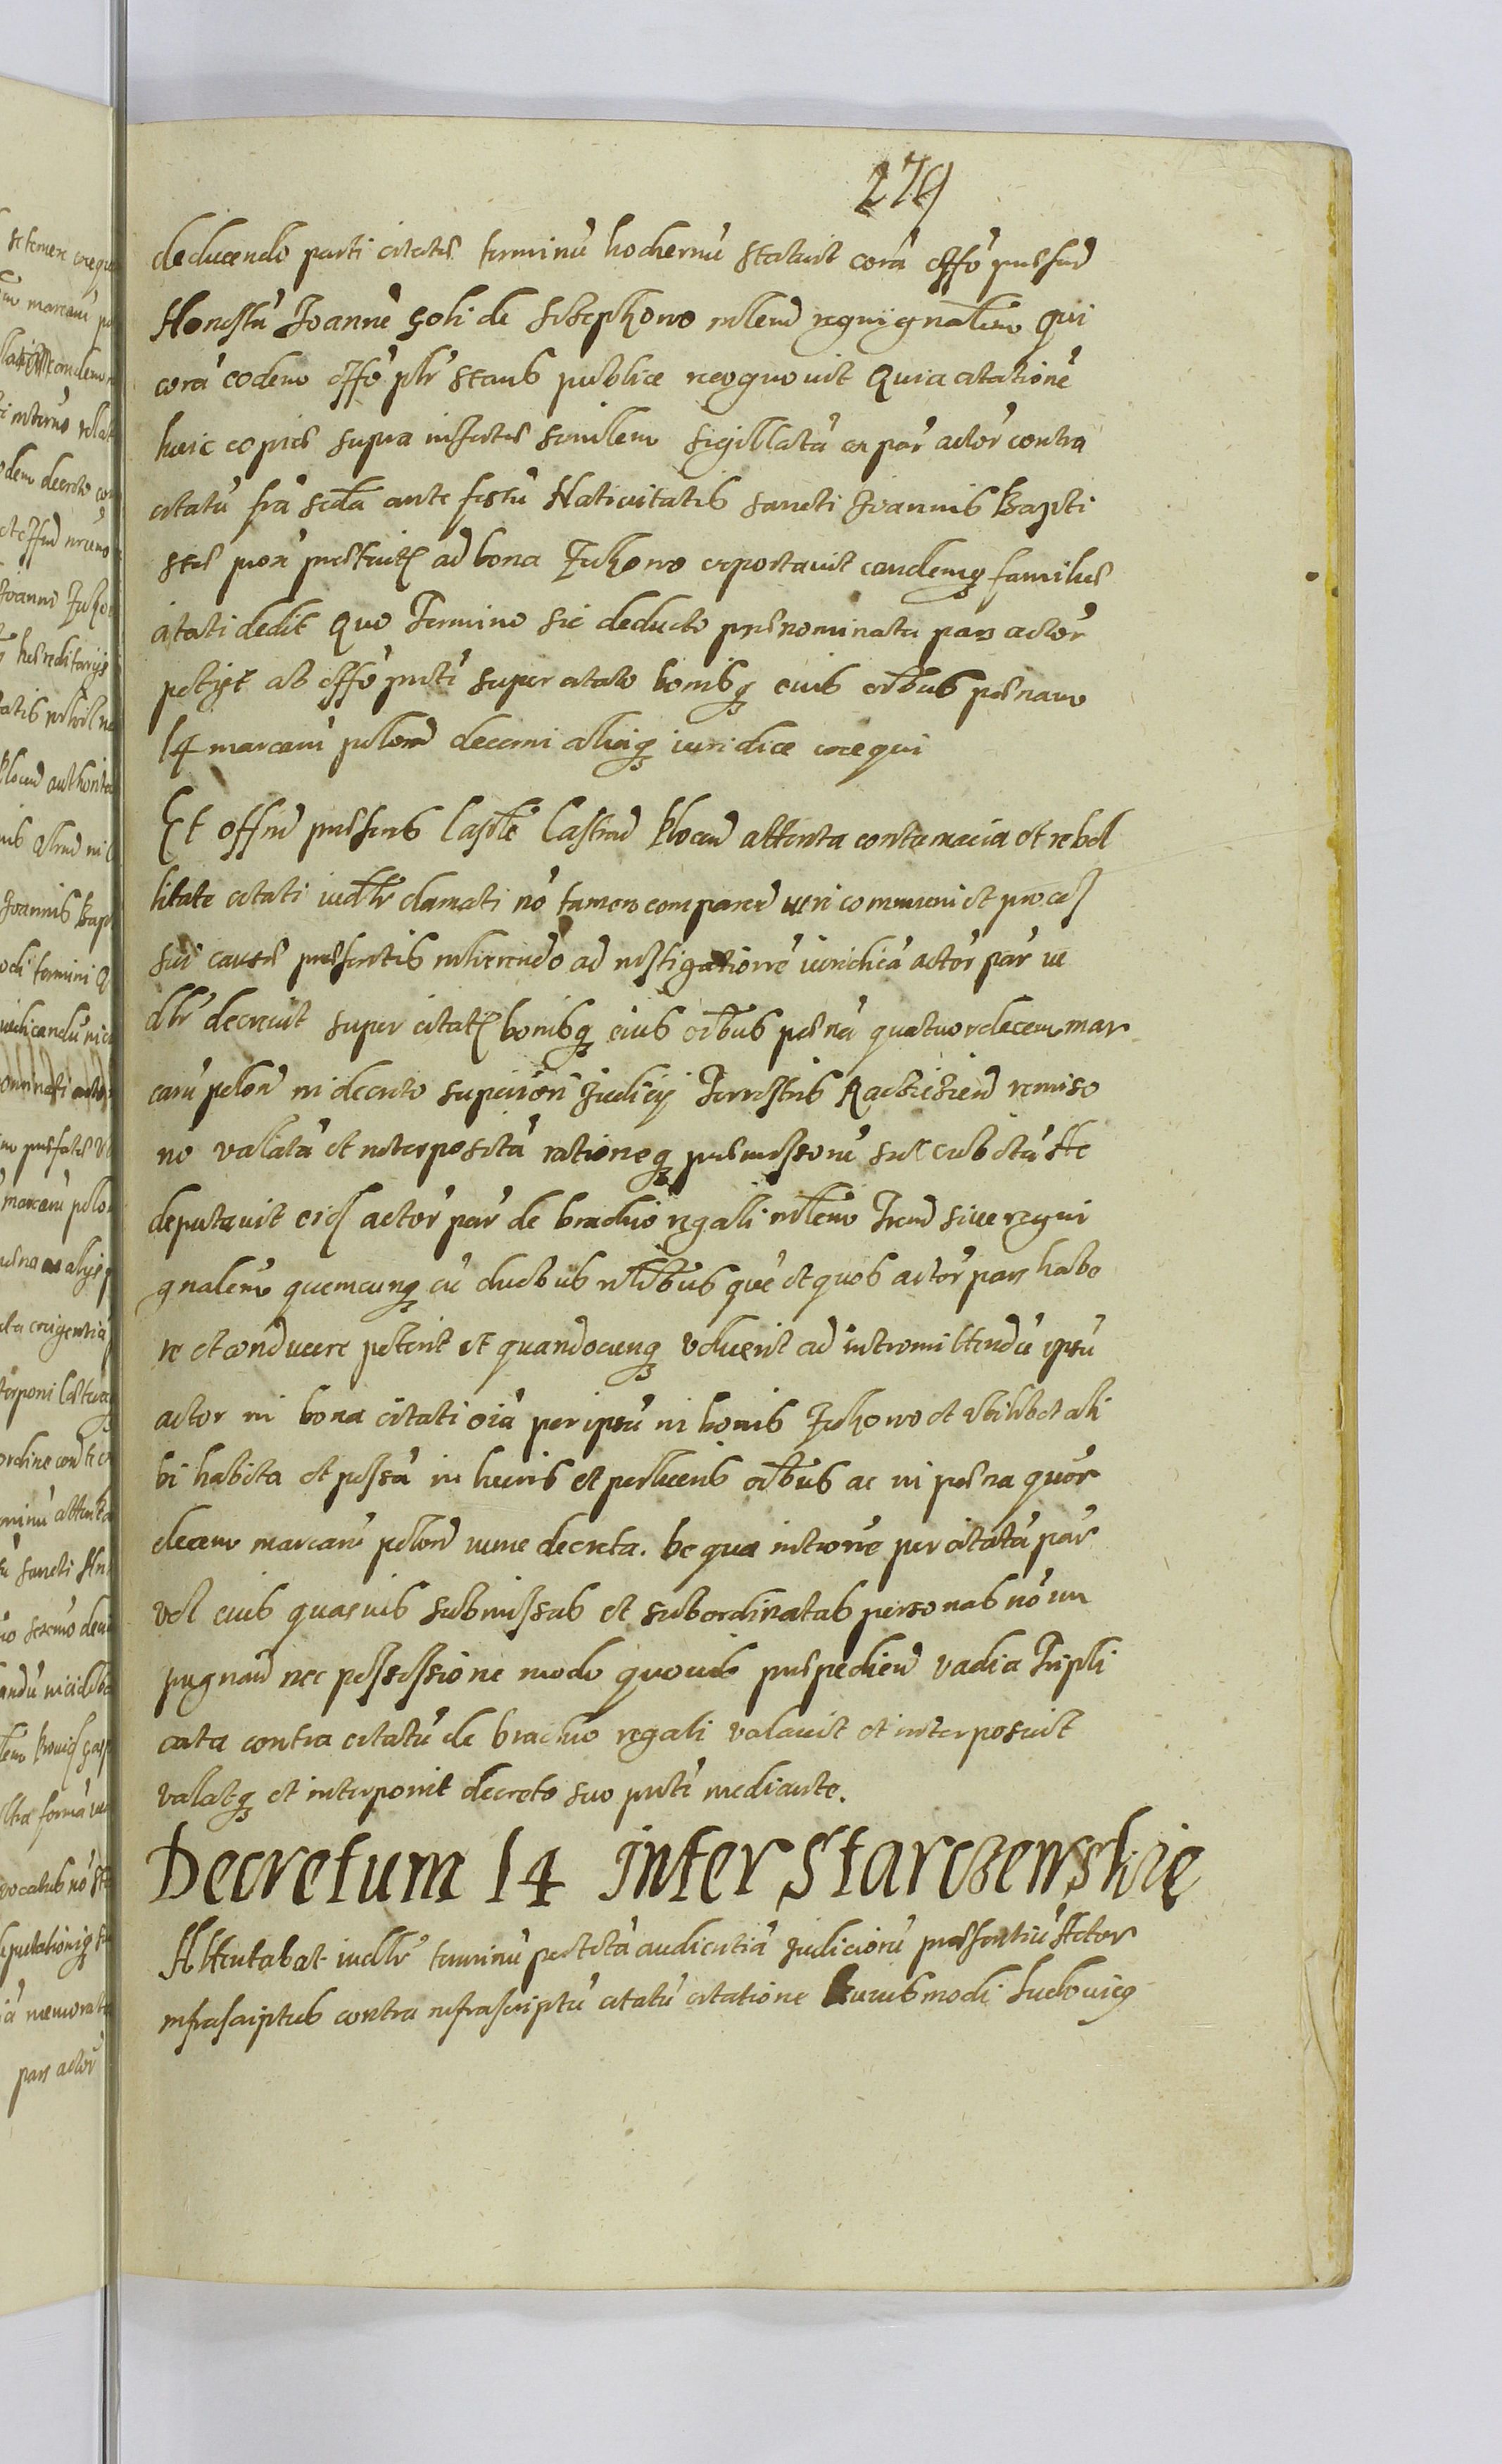 279
deducendo parti citatæ terminū hodiernū statuit corā offo præsend
Honestū Joannē Goli de mlem regnignalem Qui
corā eodem offo plr stans publice recognovit Quia citationē
huic copiæ supra insertæ similem sigillatā ex par actor contra
citatū fra scda ante festū Nativitatis sancti Joannis Bapti
stæ prox ad bona Zuchowo exportavit eandemq familiæ
citati dedit Quo Termino sic deducto prænominata pars actor
petijt ab offo pnti super citato bonisq eius oibus pœnam
14 marcarū polond decerni aliasq iuridice exequi
Et offnd præsens Caple Castrnd Plocnd attenta contumacia et rebel
litate citati iudlr clamati nō tamen comparend iuri communi et proces
sui causæ præsentis inhærendo ad instigationē iuridicā actor par iu
dlr decrevit super citat bonisq eius oibus pœnā quatuordecem mar
carū polond in decreto superiori Judicij Terrestris Raciazien remisso
ne valatā et interpositā rationeq præmissorū succubitū Ac
deputavit eid actor par de brachio regali mlem Trend sive regni
gnalem quemcunq cū duobus nlibus quē et quos actor pars habe
re et conducere poterit et quandocunq voluerit ad intromittendū ipsū
actor in bona citati oia per ipsū in bonis Zuchowo et ubilibet ali
bi habita et possā in lucris et perlucris oibus ac in pœna quor
decem marcarū polond nunc decreta. De qua introne per citatū par
vel eius quasvis submissas et subordinatas personas nō im
pugnand nec possessione modo quovis præpediend vadia Tripli
cata contra citatū de brachio regali valavit et interposuit
valatq et interponit decreto suo pnti mediante.
Decretum 14 inter Starczewskie
Attentabat iudlr terminū peditā audientiā Judiciorū præsentiū Actor
infrascriptus contra infrascriptū citatū citatione huiusmodi Ludovicq